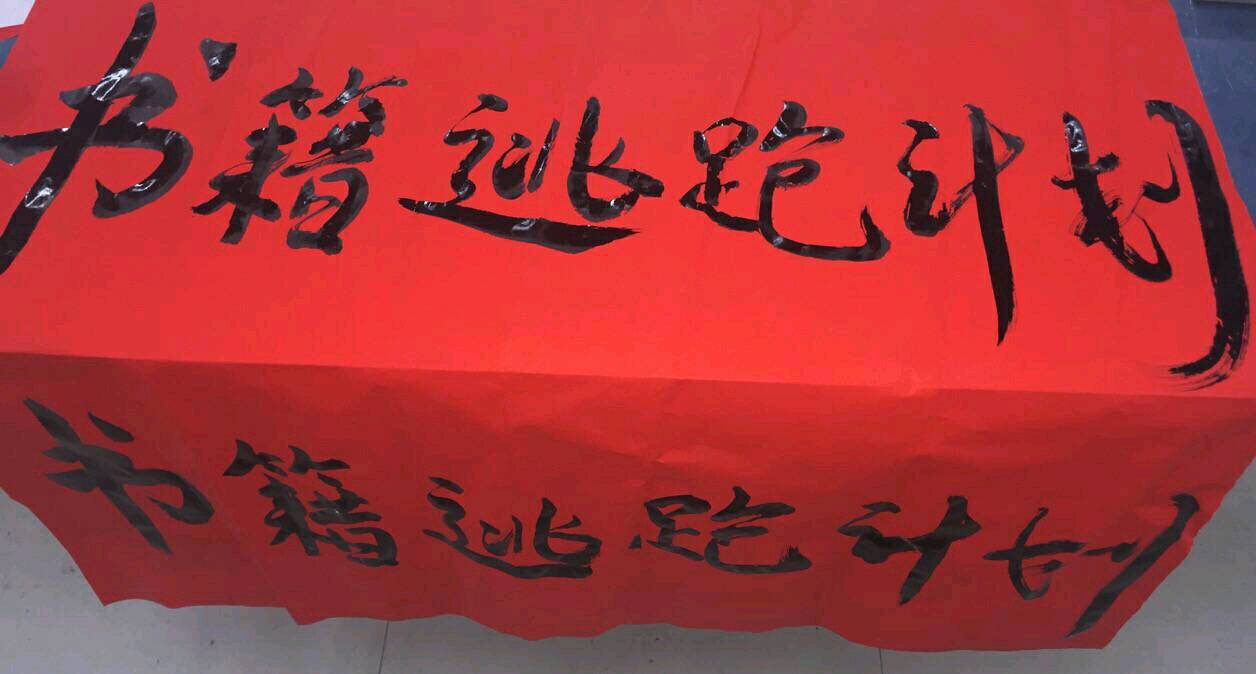 书籍逃跑计划
书籍逃跑计划